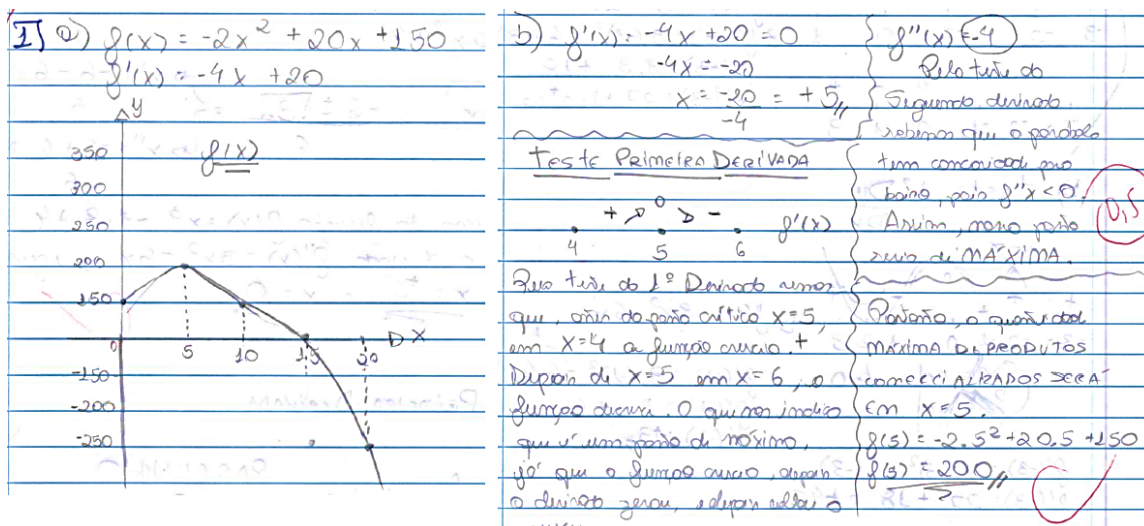 1) a) f(x) = -2x² + 20x + 150
f'(x) = -4x + 20
y
350
f(x)
300
250
200
150
0 5 10 15 20 x
-150
-200
-250
b) f'(x) = -4x + 20 = 0
-4x = -20
x = -20/-4 = +5//
Teste Primeira Derivada
+ 0 -
4 5 6 f'(x)
Pelo teste da 1ª Derivada vemos
que, antes do ponto crítico x=5,
em x=4 a função crescia. +
Depois de x=5 em x=6, a
função decresce. O que nos indica
que é um ponto de máximo,
já que a função crescia, depois
a derivada zerou, e depois voltou a
f''(x) = -4
Pelo teste da
Segunda derivada
sabemos que a parábola
tem concavidade pra
baixo, pois f''x < 0.
Assim, nosso ponto
seria de MÁXIMA.
0,5
Portanto, a quantidade
MÁXIMA DE PRODUTOS
COMERCIALIZADOS SERÁ
Em x=5.
f(5) = -2.5² + 20.5 + 150
f(5) = 200//